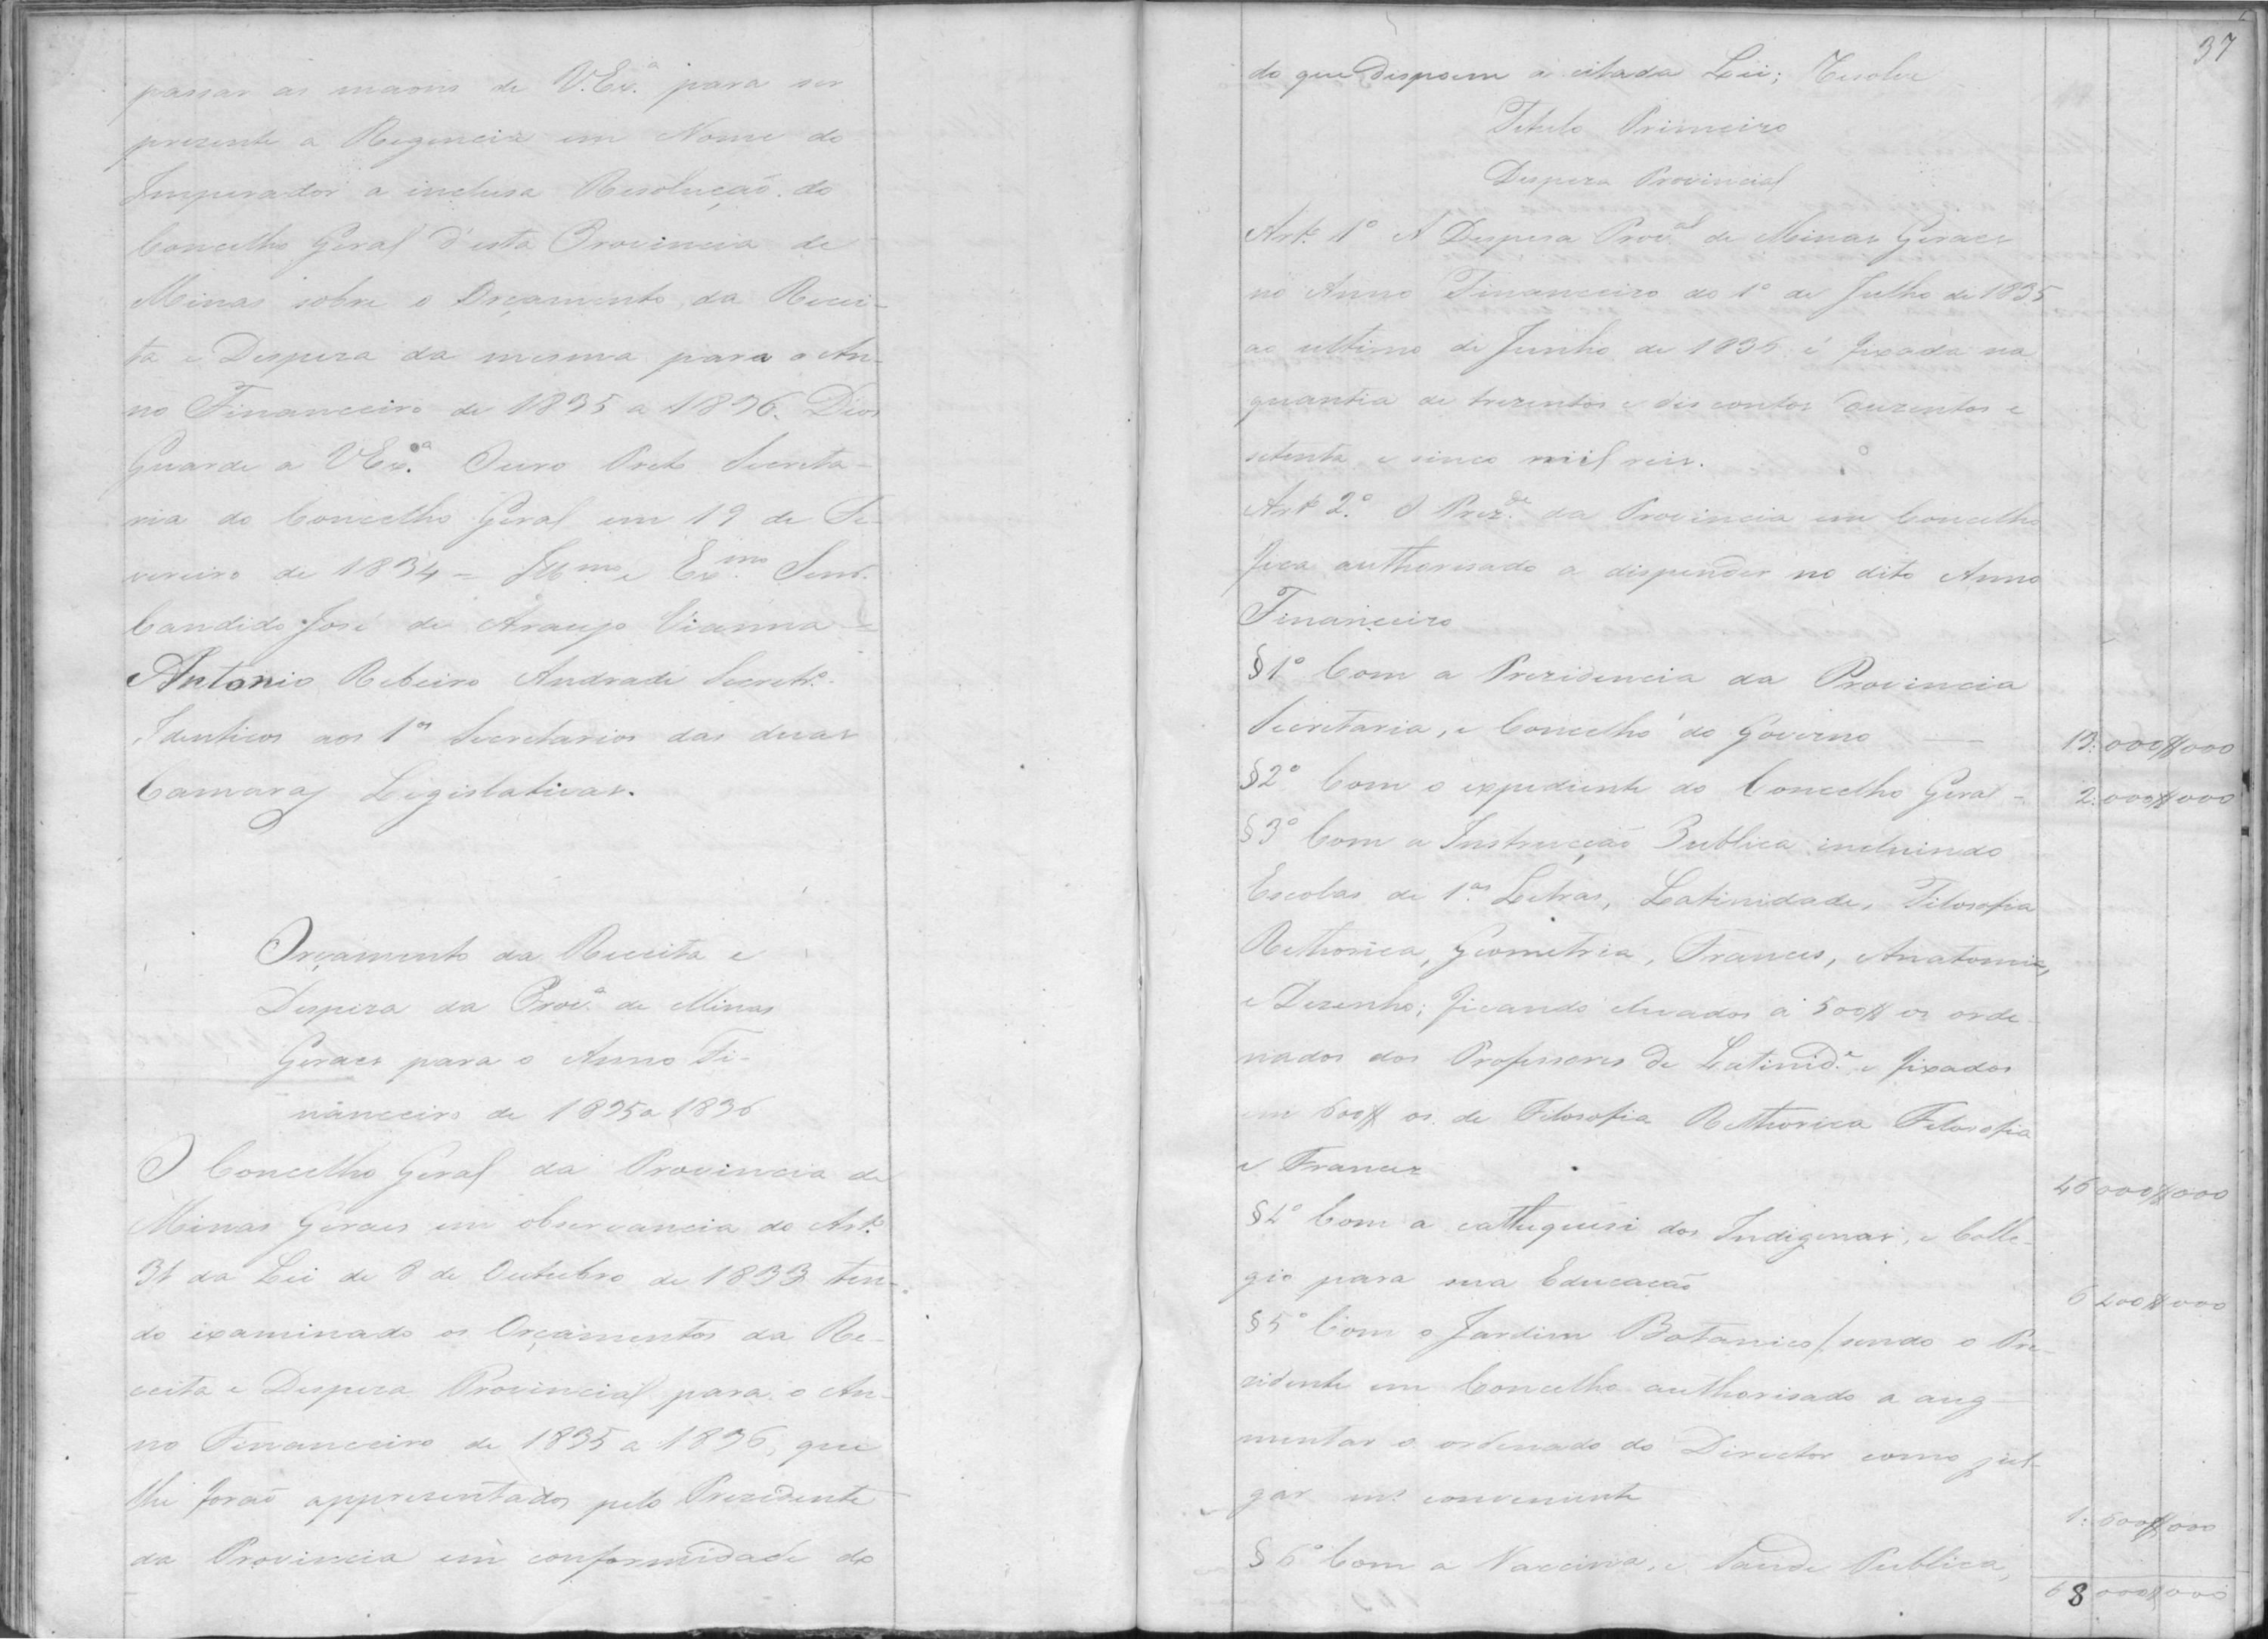 passar as maons de V.Ex.ª para ser
prezente a Regencia em Nome do
Imperador a inclusa Resolução do
Concelho Geral d'esta Provincia de
Minas sobre o Orçamento da Recei-
ta e Despeza da mesma para o An-
no Financeiro de 1835 a 1836. Dios
Guarde a VEx.ª Ouro Preto Secreta-
ria do Concelho Geral em 19 de Fe-
vereiro de 1834 = Ill.mo e Ex.mo Senr.
Candido José de Araujo Vianna =
Antonio Ribeiro Andrade Secretr.º
Identicos aos 1os Secretarios das duas
Camaras Legislativas.
Orçamento da Receita e
Despeza da Prov.ª de Minas
Geraes para o Anno Fi-
nanceiro de 1835 a 1836
O Concelho Geral da Provincia de
Minas Geraes em observancia do Art.º
34 da Lei de 8 de Outubro de 1833 ten-
do examinado os Orçamentos da Re-
ceita e Despeza Provincial para o An-
no Financeiro de 1835 a 1836, que
lhe forão appresentados pelo Prezidente
da Provincia em conformidade do
37
do que dispoem a citada Lei; Resolve
Titulo Primeiro
Despeza Provincial
Art.º 1º A Despesa Prov.al de Minas Geraes
no Anno Financeiro do 1º de Julho de 1835
ao ultimo de Junho de 1836 é fixada na
quantia de trezentos e dez contos duzentos e
setenta e sinco mil reis.
Art.º 2.º O Prez.de da Provincia em Concelho
fica authorisado a dispender no dito Anno
Financeiro
§1º Com a Prezidencia da Provincia
Secretaria, e Concelho do Governo — 13:000$000
§2º Com o expediente do Concelho Geral - 2:000$000
§3º Com a Instrucção Publica incluindo
Escolas de 1.as Letras, Latinidade, Filosofia
Rethorica, Geometria, Frances, Anatomia,
e Dezenho; ficando elevados á 500$ os orde
nados dos Professores de Latinid.e e fixados
em 600$ os de Filosofia Rethorica Filosofia
e Francez 45 000$000
§4º Com a cathequesi dos Indigenas, e Colle-
gio para sua Educacão 6 400$000
§5º Com o Jardim Botanico/sendo o Pre-
zidente em Concelho authorisado a aug-
mentar o ordenado do Director como jul-
gar m.s conveniente 1:600$000
§6º Com a Vaccina, e Saude Publica,
68 000$000